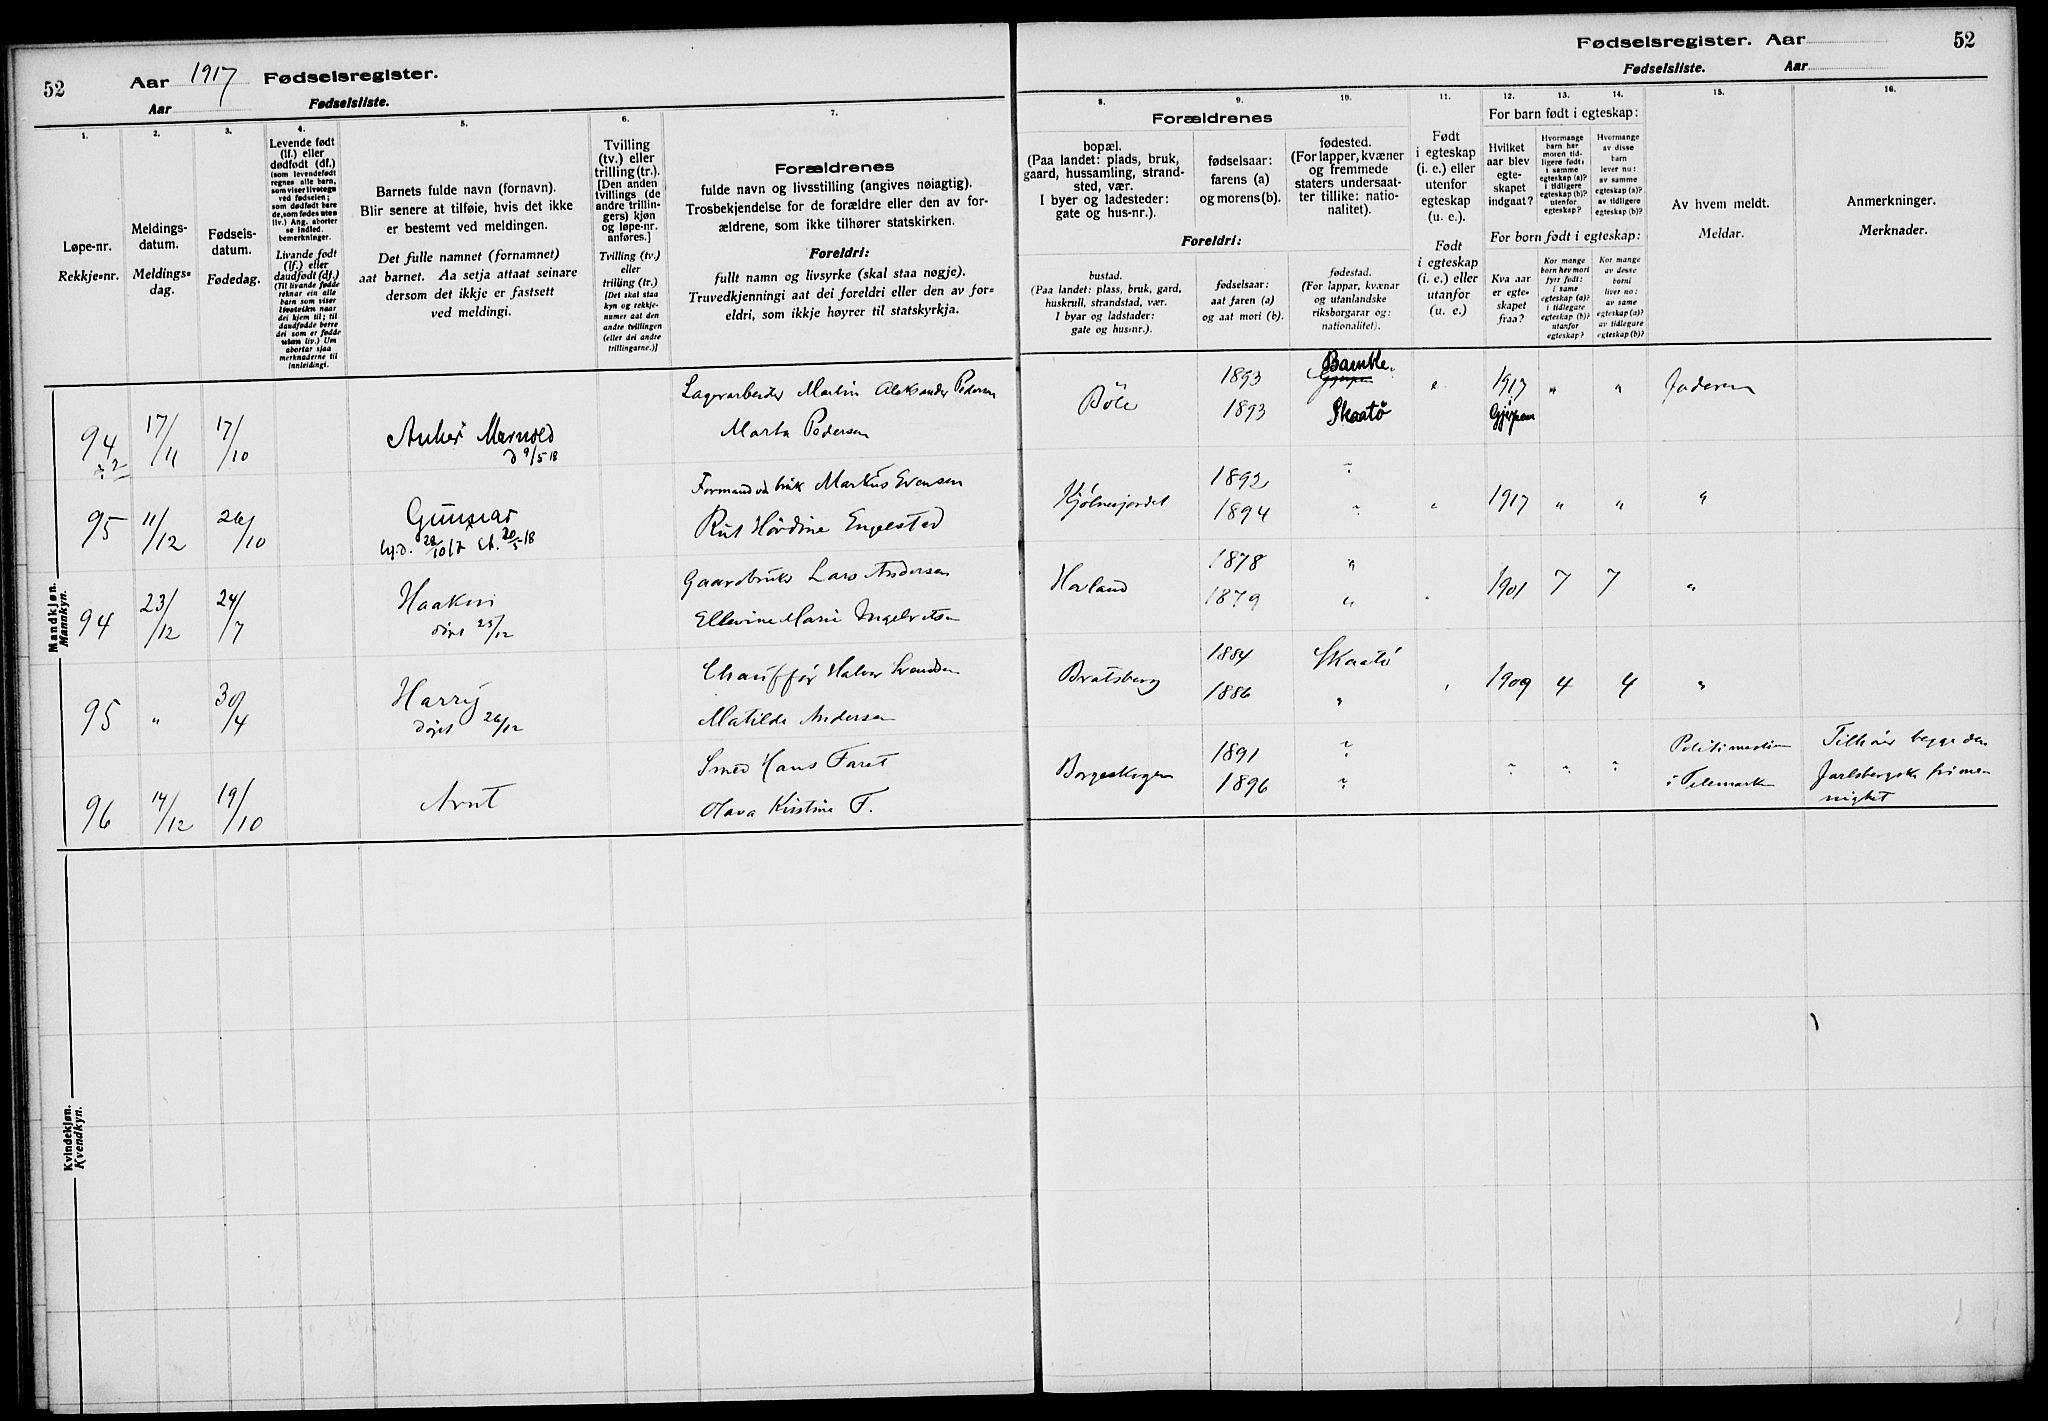 52 Aar 1917 Fødselsregister.
Aar Fødselsliste.
Fødselsregister. Aar 52
Fødselsliste. Aar
1. 2. 3. 4. 5. 6. 7.
Løpe-nr.
Rekkje=nr.
Meldings-
datum.
Meldings=
dag.
Fødsels-
datum.
Fødedag.
Levende født
(lf.) eller
dødfødt (df.)
(som levendefødt
regnes alle barn,
som viser livstegn
ved fødselen;
som dødfødt bare
de, som fødes uten
liv.) Ang. aborter
se indled.
bemerkninger.
Livande født
(lf.) eller
daudfødt (df.)
(Til livande fødde
reknar ein alle
born som viser
livsteikn naar
dei kjem til; til
daudfødde berre
dei som er fødde
utan liv.) Um
abortar sjaa
merknaderne til
innleidingi.
Barnets fulde navn (fornavn).
Blir senere at tilføie, hvis det ikke
er bestemt ved meldingen.
Det fulle namnet (fornamnet)
aat barnet. Aa setja attaat seinare
dersom det ikkje er fastsett
ved meldingi.
Tvilling
(tv.) eller
trilling (tr.).
[Den anden
tvillings (de
andre trillin-
gers) kjøn
og løpe-nr.
anføres.]
Tvilling (tv.)
eller
trilling (tr.)
[Det skal staa
kyn og rekkje-
numer aat den
andre tvillingen
(eller dei andre
trillingarne.)]
Forældrenes
fulde navn og livsstilling (angives nøiagtig).
Trosbekjendelse for de forældre eller den av for-
ældrene, som ikke tilhører statskirken.
Foreldri:
fullt namn og livsyrke (skal staa nøgje).
Truvedkjenningi aat dei foreldri eller den av for-
eldri, som ikkje høyrer til statskyrkja.
8. 9. 10. 11. 12. 13. 14. 15. 16.
Forældrenes
bopæl.
(Paa landet: plads, bruk,
gaard, hussamling, strand-
sted, vær.
I byer og ladesteder:
gate og hus-nr.).
fødselsaar:
farens (a)
og morens (b).
fødested.
(For lapper, kvæner
og fremmede
staters undersaat-
ter tillike: natio-
nalitet).
Foreldri:
bustad.
(Paa landet: plass, bruk, gard,
huskrull, strandstad, vær.
I byar og ladstader:
gate og hus=nr.).
fødselsaar:
aat faren (a)
og aat mori (b).
fødestad.
(For lappar, kvænar
og utanlandske
riksborgarar og:
nationalitet).
Født
i egteskap
(i. e.) eller
utenfor
egteskap
(u. e.).
Født
i egteskap
(i. e.) eller
utanfor
(u. e.)
For barn født i egteskap:
Hvilket
aar blev
egte-
skapet
indgaat?
Hvormange
barn har
moren tid-
ligere født:
i samme
egteskap (a)?
i tidligere
egteskap (b)?
utenfor
egteskap?
Hvormange
av disse
barn
lever nu:
av samme
egteskap (a)?
av tidligere
egteskap (b)?
For born født i egteskap:
Kva aar
er egte-
skapet
fraa?
Kor mange
born hev mori
fyrr født:
i same
egteskap (a)?
i tidlegare
egteskap (b)?
utanfor
egteskap?
Kor mange
av desse
borni
liver no:
av same
egteskap (a)?
av tidlegare
egteskap (b)?
Av hvem meldt.
Meldar.
Anmerkninger.
Merknader.
Mandkjøn.
Mannkyn.
94 17/11 17/10 Anker Marnold Lagerarbeider Martin Aleksander Pedersen Böle 1893 Bamble Gjerpen 1917 " " Faderen
d 9/5 18 Marta Pedersen 1893 Skaatö Gjerpen
95 11/12 26/10 Gunnar Markus Evensen Kjølnesjordet 1892 " 1917 " " "
28/10 17 20/5-18 Rut Hördine Engelstad 1894 "
94 23/12 24/7 Haakon Gaardbruk Lars Andersen Hovland 1878 " 1901 7 7 "
döpt 25/12 Ellevine Marie Ingebretsen 1879 "
95 " 30/4 Harry Chauffør Halvor Svendsen Bratsberg 1884 Skaatö 1909 4 4 "
döpt 26/12 Matilde Andersen 1886 "
96 14/12 19/10 Arnt Smed Hans Faret Borgeskogen 1891 " " " " Politimesteren Tilhör begge den
Olava Kristine F. 1896 " i Telemarken Jarlsbergske frime-
nighet
Kvindekjøn.
Kvendkyn.